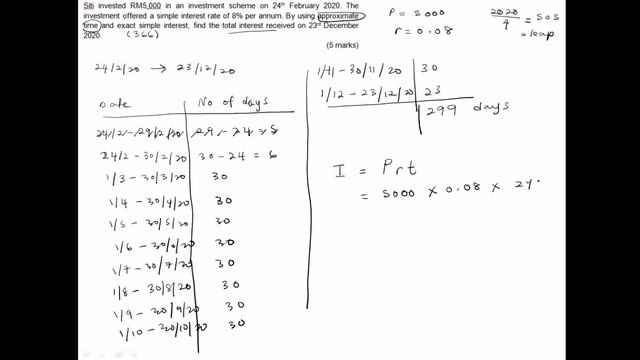 Siti invested RM5,000 in an investment scheme on 24th February 2020. The
investment offered a simple interest rate of 8% per annum. By using approximate
time and exact simple interest, find the total interest received on 23rd December
2020. (366)
(5 marks)
P = 5000
r = 0.08
2020/4 = 505
= leap
24/2/20 → 23/12/20
Date No of days
24/2 - 29/2/20 29 - 24 = 5
24/2 - 30/2/20 30 - 24 = 6
1/3 - 30/3/20 30
1/4 - 30/4/20 30
1/5 - 30/5/20 30
1/6 - 30/6/20 30
1/7 - 30/7/20 30
1/8 - 30/8/20 30
1/9 - 30/9/20 30
1/10 - 30/10/20 30
1/11 - 30/11/20 30
1/12 - 23/12/20 23
299 days
I = Prt
= 5000 × 0.08 × 29